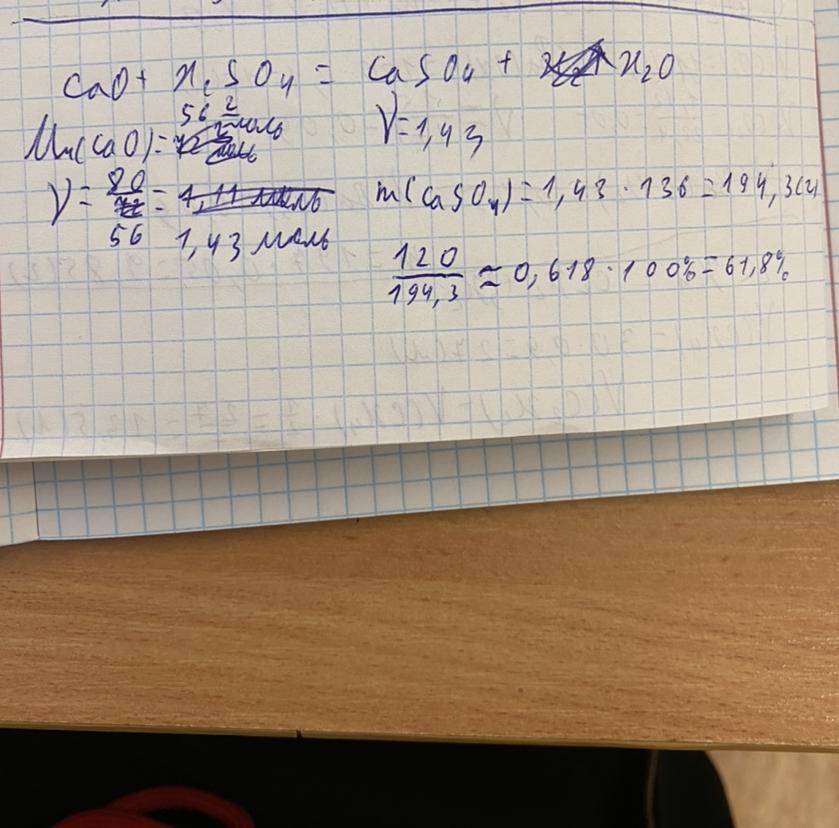 CaO + H₂SO₄ = CaSO₄ + H₂O
Mr(CaO) = 56 г/моль
ν = 1,43
ν = 80/56 = 1,43 моль
m(CaSO₄) = 1,43 · 136 = 194,3(г)
120/194,3 ≈ 0,618 · 100% = 61,8%